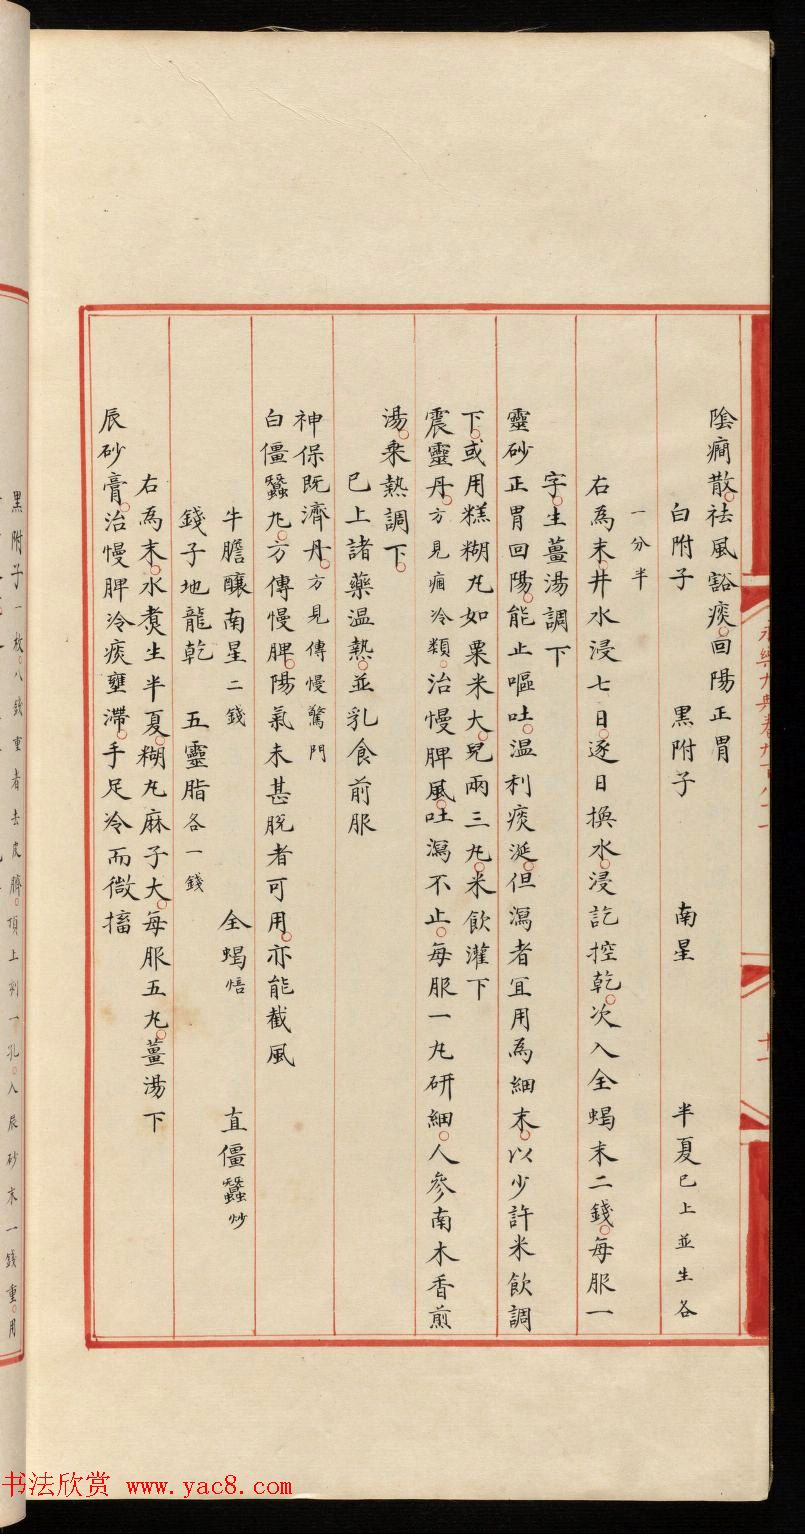 陰癎散。祛風豁痰。回陽正胃
白附子 黑附子 南星 半夏已上並生各
一分半
右為末。井水浸七日。逐日換水。浸訖控乾。次入全蝎末二錢。每服一
字。生薑湯調下
靈砂正胃回陽。能止嘔吐。温利痰涎。但瀉者冝用為細末。以少許米飲調
下。或用糕糊丸如粟米大。兒兩三丸。米飲灌下
震靈丹。方見痼冷類。治慢脾風。吐瀉不止。每服一丸研細。人參南木香煎
湯。乗熱調下。
已上諸藥温熱。並乳食前服
神保既濟丹。方見傳慢驚門
白僵蠶丸。方傳慢脾。陽氣未甚脫者可用。亦能截風
牛膽釀南星二錢 全蝎焙 直僵蠶炒
錢子地龍乾 五靈脂各一錢
右為末。水煑生半夏。糊丸麻子大。每服五丸。薑湯下
辰砂膏。治慢脾冷痰壅滯。手足冷而微搐
黑附子一枚。八錢重者去皮臍。頂上剜一孔。入辰砂末一錢重。用
永樂大典卷九百八十一
书法欣赏 www.yac8.com